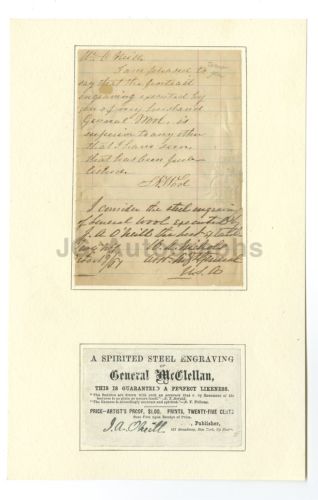 Mr. O'Neill
I am pleased to
say that the portrait
engraving executed by
you of my husband
General Wool, is
superior to any other
that I have seen
that has been pub-
lished.
Wool
I consider the steel engraving
of General Wool executed by
J. A. O'Neill the best of
U.S.A.
A SPIRITED STEEL ENGRAVING
OF
General McClellan,
THIS IS GUARANTEED A PERFECT LIKENESS.
PRICE—ARTIST'S PROOF, $1.00. PRINTS, TWENTY-FIVE CENTS
Sent Free upon Receipt of Price.
J.A. O'Neill, Publisher,
Broadway, New York